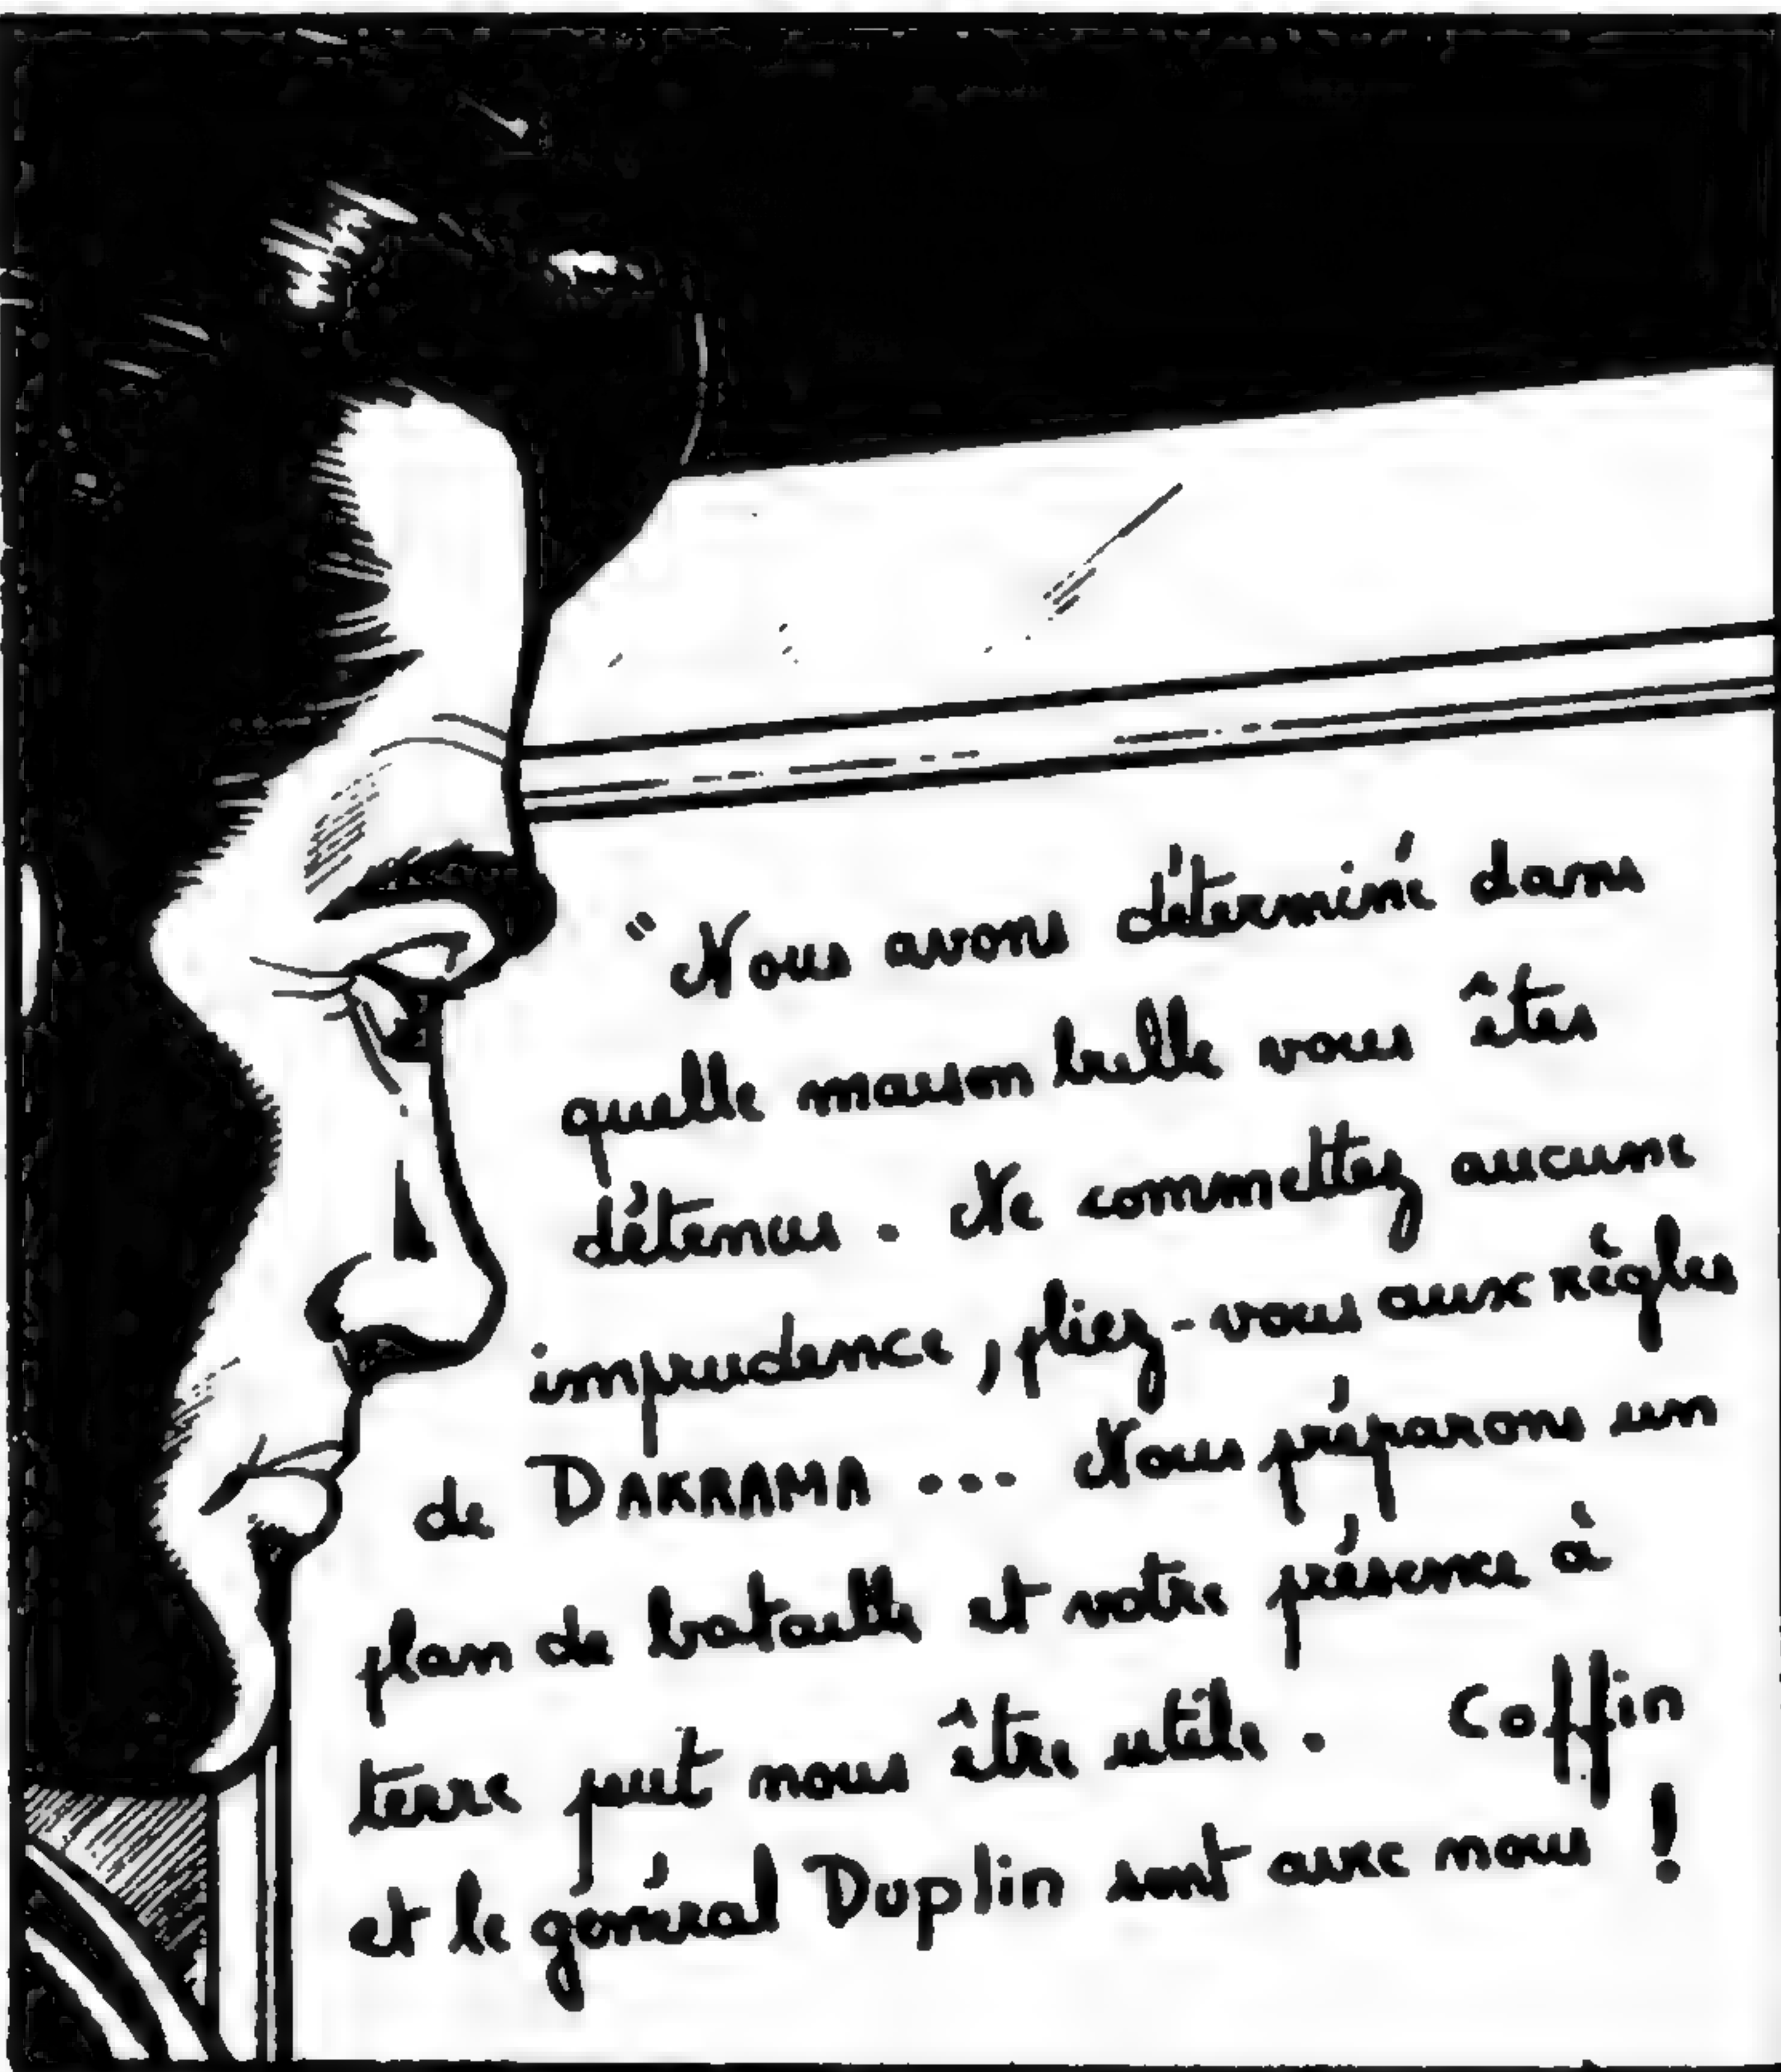 "Nous avons déterminé dans
quelle maison bulle vous êtes
détenus. Ne commettez aucune
imprudence, pliez-vous aux règles
de DAKRAMA... Nous préparons un
plan de bataille et votre présence à
terre peut nous être utile. Coffin
et le général Duplin sont avec nous !